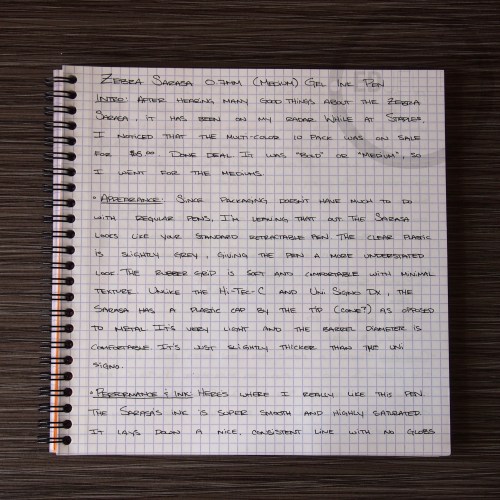 ZEBRA SARASA 0.7MM (MEDIUM) GEL INK PEN
INTRO: AFTER HEARING MANY GOOD THINGS ABOUT THE ZEBRA
SARASA, IT HAS BEEN ON MY RADAR. WHILE AT STAPLES,
I NOTICED THAT THE MULTI-COLOR 10 PACK WAS ON SALE
FOR $5.00. DONE DEAL. IT WAS "BOLD" OR "MEDIUM", SO
I WENT FOR THE MEDIUMS.
• APPEARANCE: SINCE PACKAGING DOESN'T HAVE MUCH TO DO
WITH REGULAR PENS, I'M LEAVING THAT OUT. THE SARASA
LOOKS LIKE YOUR STANDARD RETRACTABLE PEN. THE CLEAR PLASTIC
IS SLIGHTLY GREY, GIVING THE PEN A MORE UNDERSTATED
LOOK. THE RUBBER GRIP IS SOFT AND COMFORTABLE WITH MINIMAL
TEXTURE. UNLIKE THE HI-TEC-C AND UNI SIGNO DX, THE
SARASA HAS A PLASTIC CAP BY THE TIP (CONE?) AS OPPOSED
TO METAL. IT'S VERY LIGHT AND THE BARREL DIAMETER IS
COMFORTABLE. IT'S JUST SLIGHTLY THICKER THAN THE UNI
SIGNO.
• PERFORMANCE & INK: HERE'S WHERE I REALLY LIKE THIS PEN.
THE SARASA'S INK IS SUPER SMOOTH AND HIGHLY SATURATED.
IT LAYS DOWN A NICE, CONSISTENT LINE WITH NO GLOBS